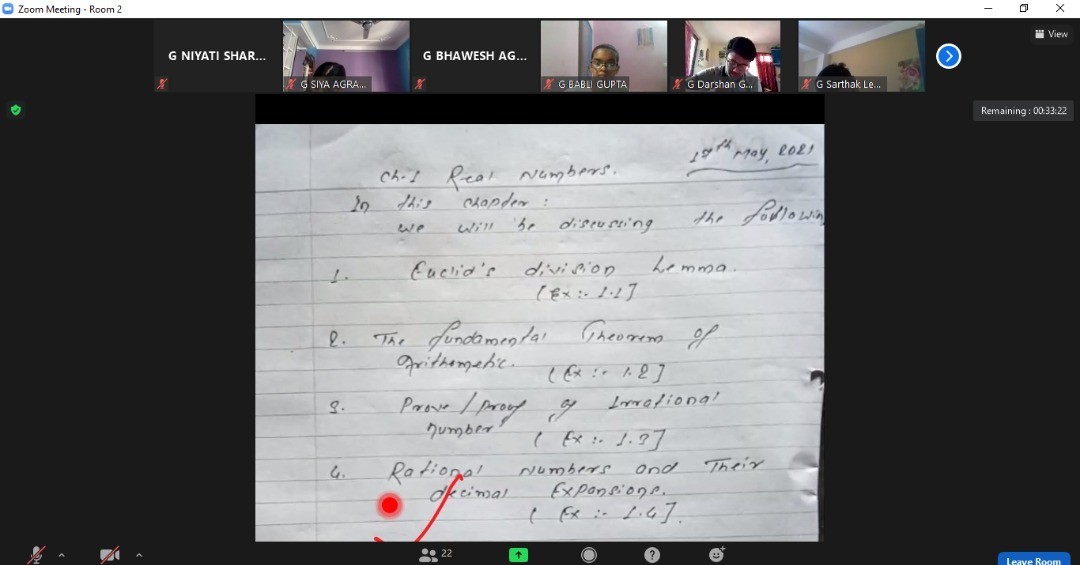 Zoom Meeting - Room 2
View
G NIYATI SHAR...
G SIYA AGRA...
G BHAWESH AG...
G BABLI GUPTA
G Darshan G...
G Sarthak Le...
Remaining : 00:33:22
May, 2021
Ch.1 Real Numbers.
In this chapter :
we will be discussing the followin
1. Euclid's division Lemma.
[Ex :- 1.1]
2. The fundamental Theorem of
Arithemetic.
[Ex :- 1.2]
3. Prove / proof of Irrational
number
[Ex :- 1.3]
4. Rational Numbers and Their
decimal Expansions.
[Ex :- 1.4].
22
Leave Room